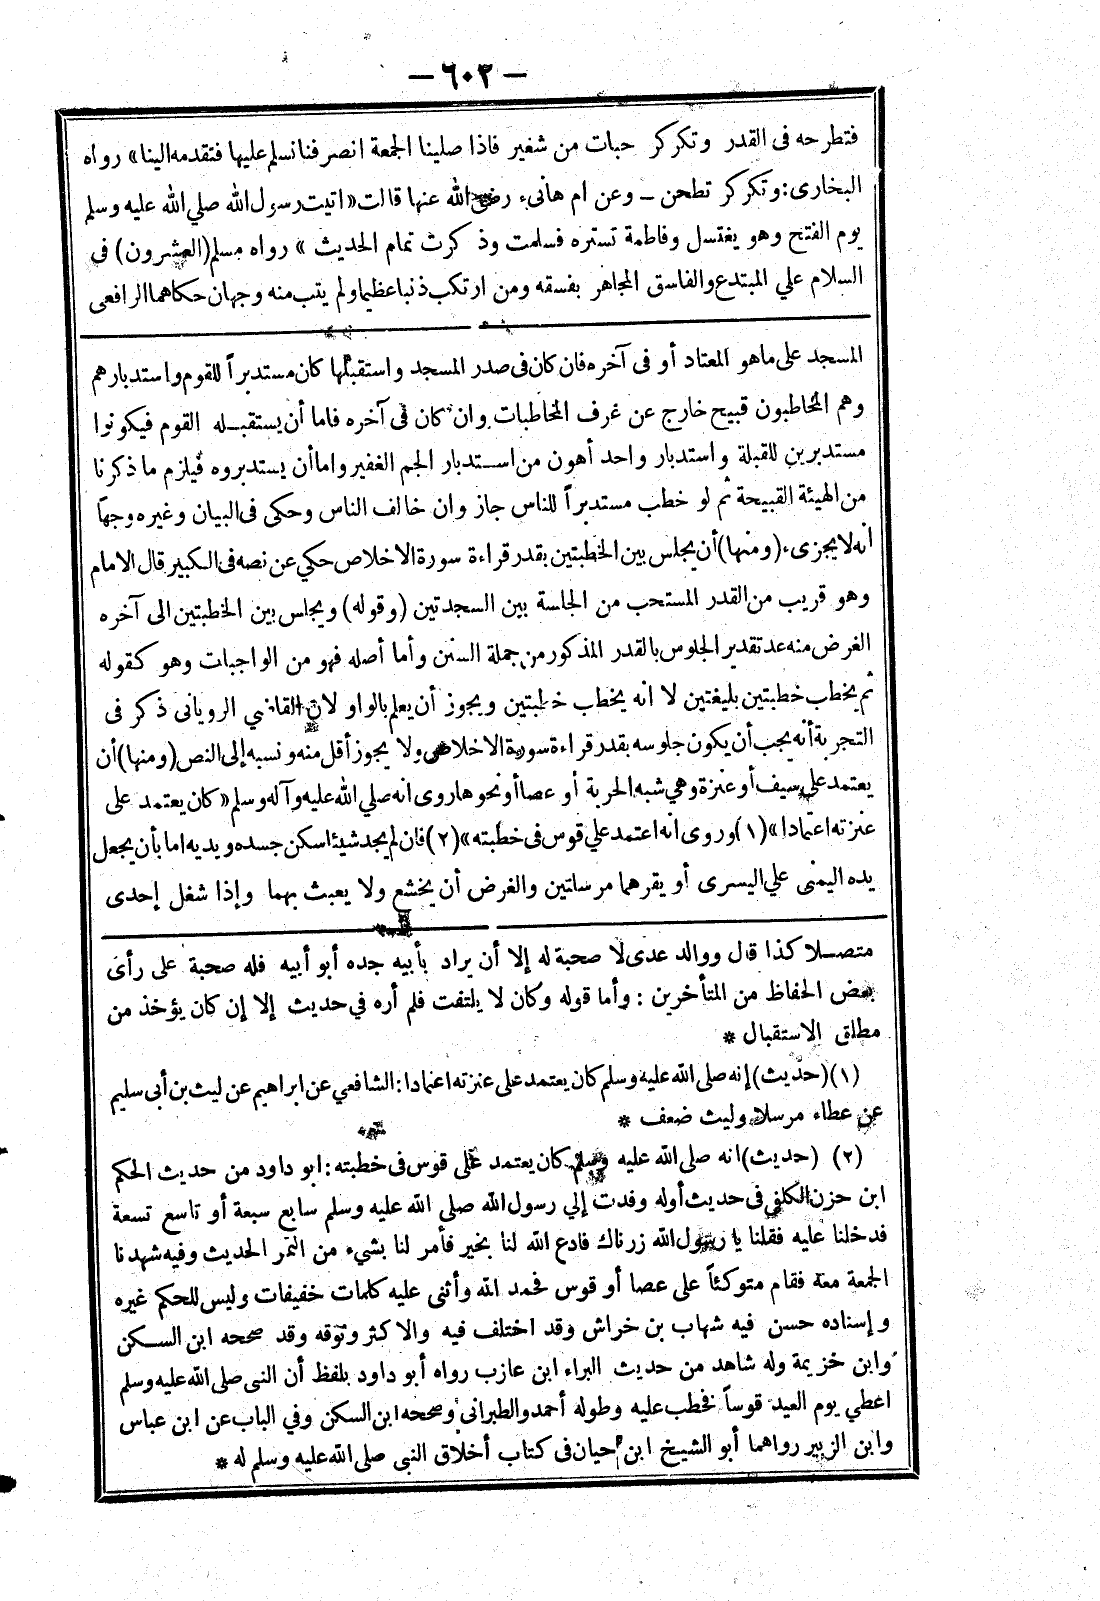 — ٦٠٣ —
فتطرحه فى القدر وتكركر حبات من شعير فاذا صلينا الجمعة انصرفنا نسلم عليها فتقدمه الينا» رواه
البخارى: وتكركر تطحن ــ وعن ام هانىء رضي الله عنها قالت «اتيت رسول الله صلي الله عليه وسلم
يوم الفتح وهو يغتسل وفاطمة تستره فسلمت وذكرت تمام الحديث » رواه مسلم (العشرون) فى
السلام علي المبتدع والفاسق المجاهر بفسقه ومن ارتكب ذنبا عظيما ولم يتب منه وجهان حكاهما الرافعى
المسجد على ماهو المعتاد أو فى آخره فان كان فى صدر المسجد واستقبلها كان مستدبراً للقوم واستدبارهم
وهم المخاطبون قبيح خارج عن عرف المخاطبات وان كان فى آخره فاما أن يستقبـله القوم فيكونوا
مستدبرين للقبلة واستدبار واحد أهون من اسـتدبار الجم الغفير واما أن يستدبروه فيلزم ما ذكرنا
من الهيئة القبيحة ثم لو خطب مستدبراً للناس جاز وان خالف الناس وحكى فى البيان وغيره وجهاً
انه لا يجزىء (ومنها) أن يجلس بين الخطبتين بقدر قراءة سورة الاخلاص حكي عن نصه فى الكبير قال الامام
وهو قريب من القدر المستحب من الجلسة بين السجدتين (وقوله) ويجلس بين الخطبتين الى آخره
الغرض منه عد تقدير الجلوس بالقدر المذكور من جملة السنن وأما أصله فهو من الواجبات وهو كقوله
ثم يخطب خطبتين بليغتين لا انه يخطب خطبتين ويجوز أن يعلم بالواو لان القاضي الرويانى ذكر فى
التجربة أنه يجب أن يكون جلوسه بقدر قراءة سورة الاخلاص ولا يجوز أقل منه ونسبه إلى النص (ومنها) أن
يعتمد علي سيف أو عنزة وهي شبه الحربة أو عصا أو نحوها روى انه صلي الله عليه وآله وسلم «كان يعتمد على
عنزته اعتمادا» (١) وروى انه اعتمد علي قوس فى خطبته» (٢) فان لم يجد شيئا سكن جسده ويديه اما بأن يجعل
يده اليمنى علي اليسرى أو يقرهما مرسلتين والغرض أن يخشع ولا يعبث بهما وإذا شغل إحدى
متصـلا كذا قال ووالد عدى لا صحبة له إلا أن يراد بأبيه جده أبو أبيه فله صحبة على رأى
بعض الحفاظ من المتأخرين : وأما قوله وكان لا يلتفت فلم أره في حديث إلا إن كان يؤخذ من
مطلق الاستقبال *
(١) (حديث) إنه صلى الله عليه وسلم كان يعتمد على عنزته اعتمادا: الشافعي عن ابراهيم عن ليث بن أبى سليم
عن عطاء مرسلا وليث ضعف *
(٢) (حديث) انه صلى الله عليه وسلم كان يعتمد على قوس فى خطبته : ابو داود من حديث الحكم
ابن حزن الكلفى فى حديث أوله وفدت إلي رسول الله صلى الله عليه وسلم سابع سبعة أو تاسع تسعة
فدخلنا عليه فقلنا يا رسول الله زرناك فادع الله لنا بخير فأمر لنا بشىء من التمر الحديث وفيه شهدنا
الجمعة معه فقام متوكئاً على عصا أو قوس فحمد الله وأثنى عليه كلمات خفيفات وليس للحكم غيره
وإسناده حسن فيه شهاب بن خراش وقد اختلف فيه والاكثر وثقه وقد صححه ابن السـكن
وابن خزيمة وله شاهد من حديث البراء ابن عازب رواه أبو داود بلفظ أن النبى صلى الله عليه وسلم
اعطي يوم العيد قوساً فخطب عليه وطوله أحمد والطبرانى وصححه ابن السكن وفي الباب عن ابن عباس
وابن الزبير رواهما أبو الشيخ ابن حيان فى كتاب أخلاق النبى صلى الله عليه وسلم له *